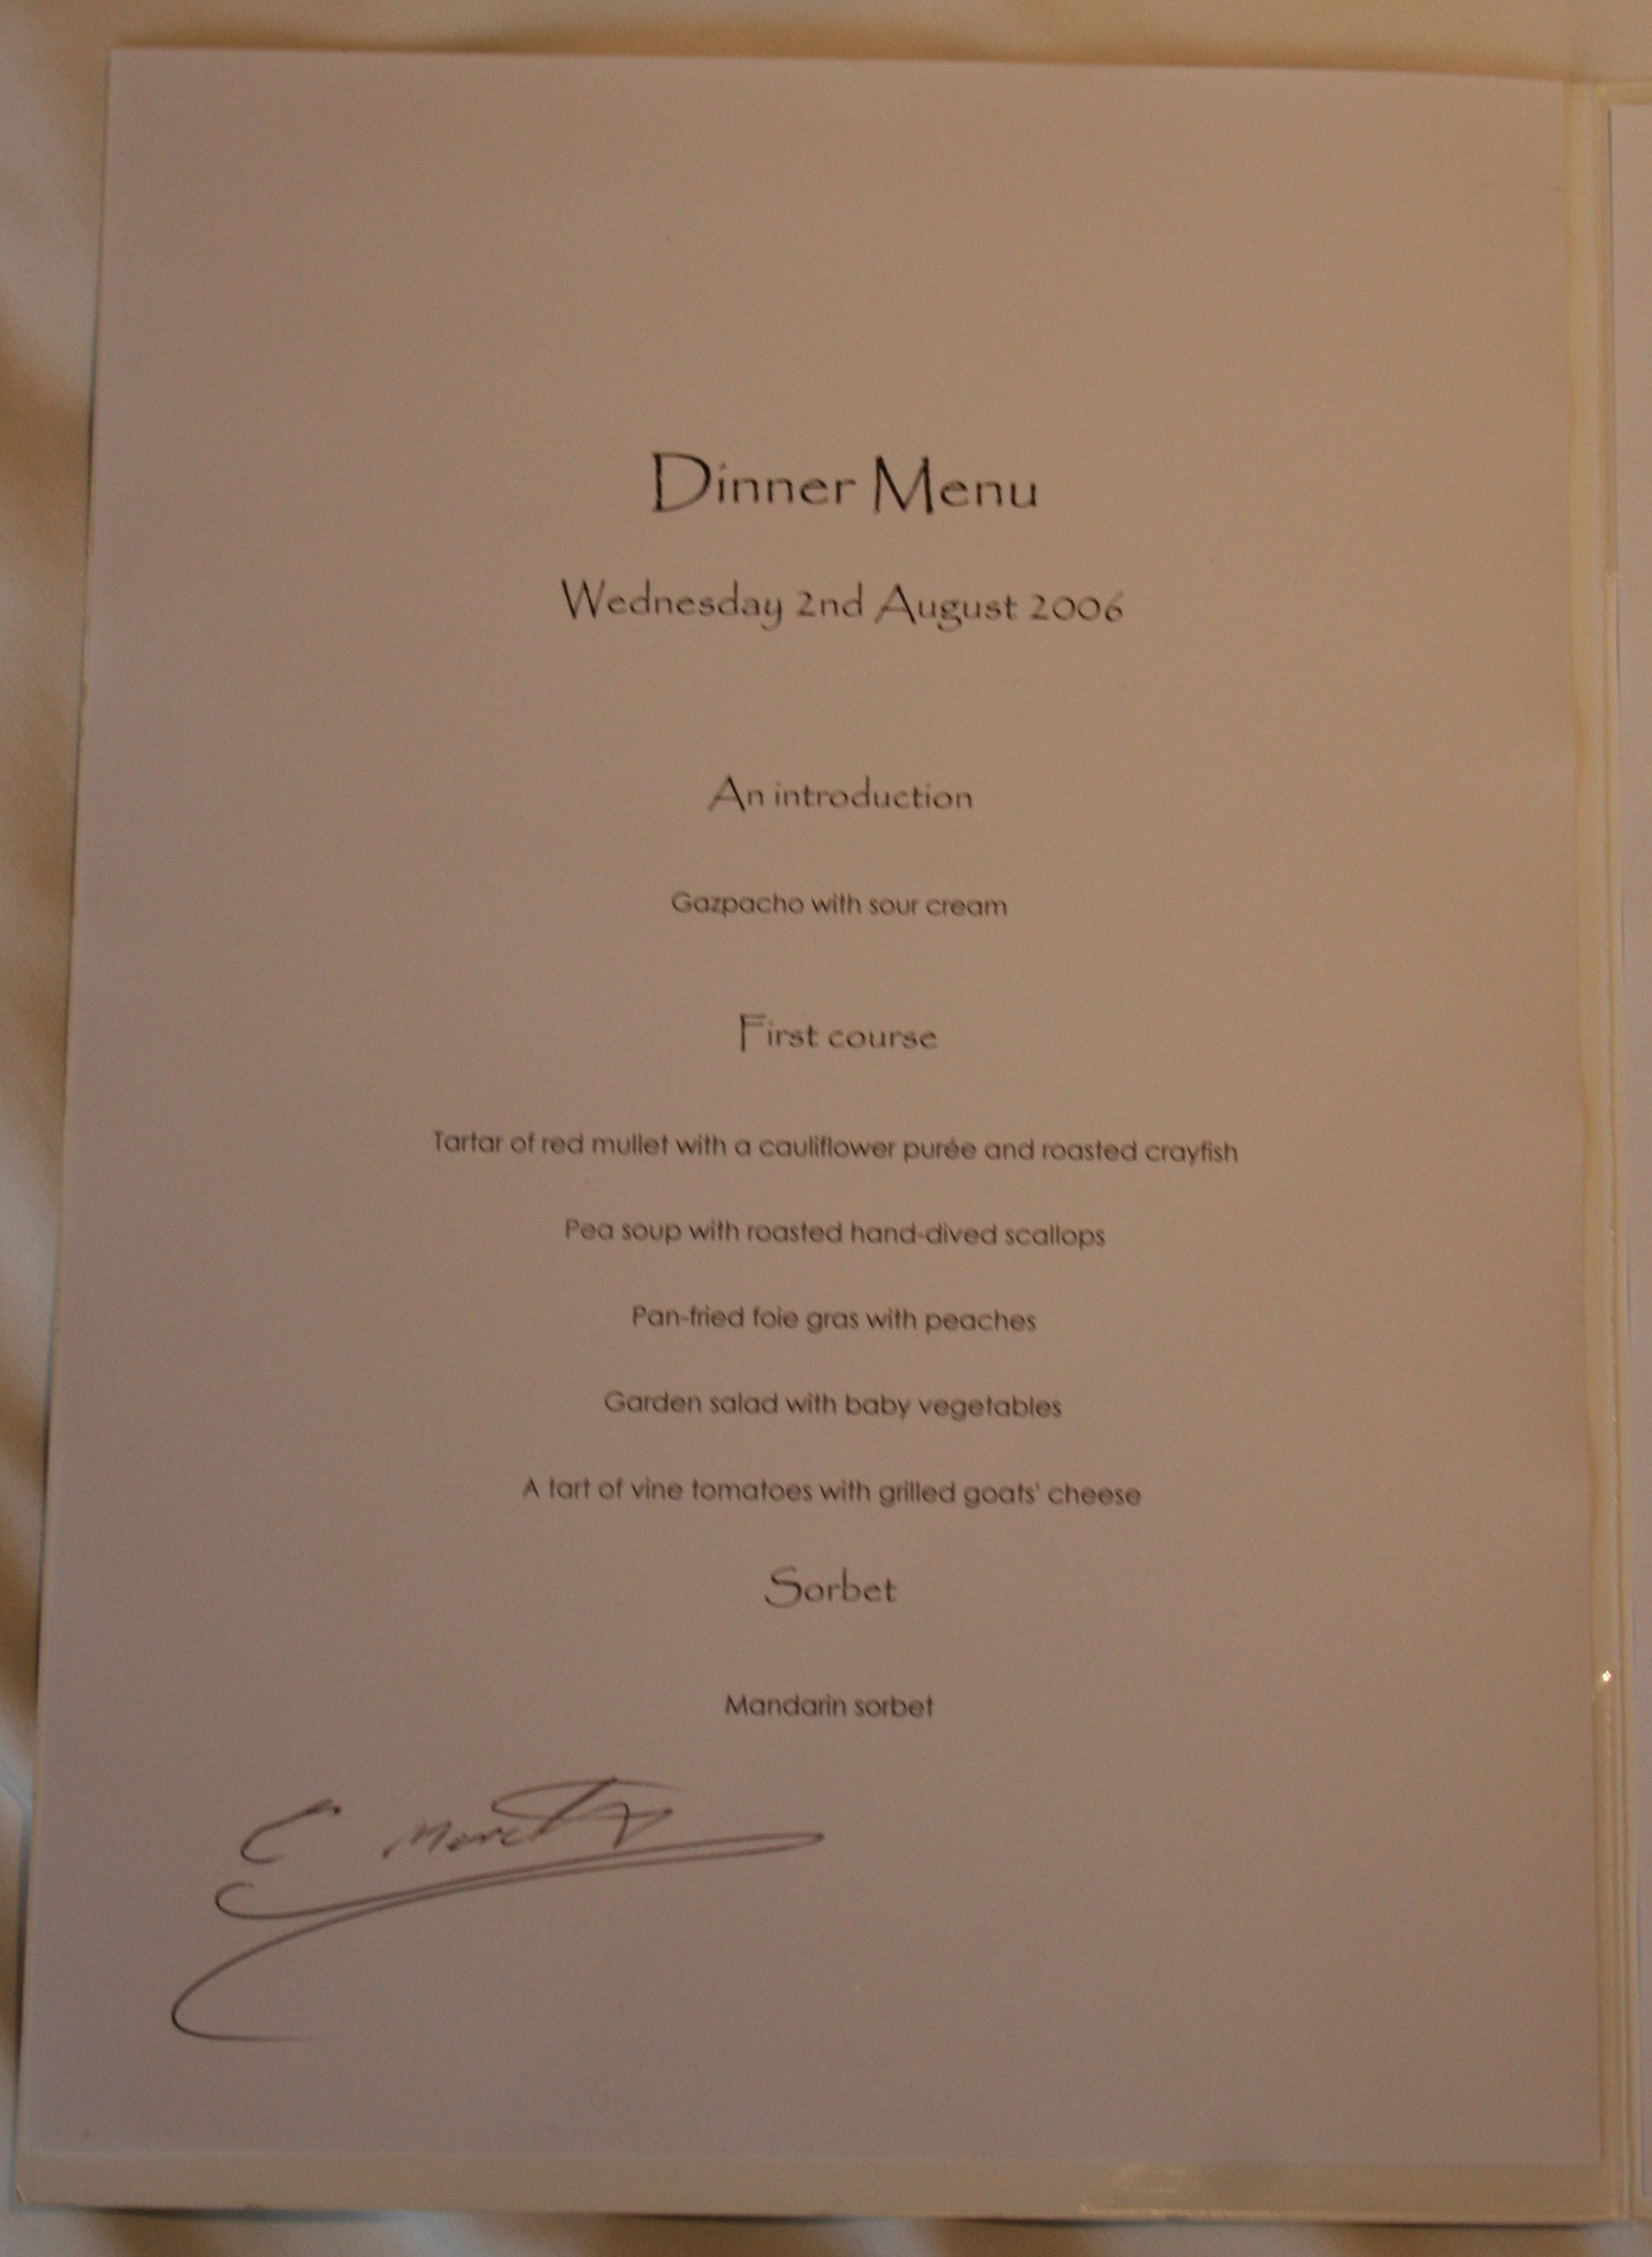 Dinner Menu
Wednesday 2nd August 2006
An introduction
Gazpacho with sour cream
First course
Tartar of red mullet with a cauliflower purée and roasted crayfish
Pea soup with roasted hand-dived scallops
Pan-fried foie gras with peaches
Garden salad with baby vegetables
A tart of vine tomatoes with grilled goats' cheese
Sorbet
Mandarin sorbet